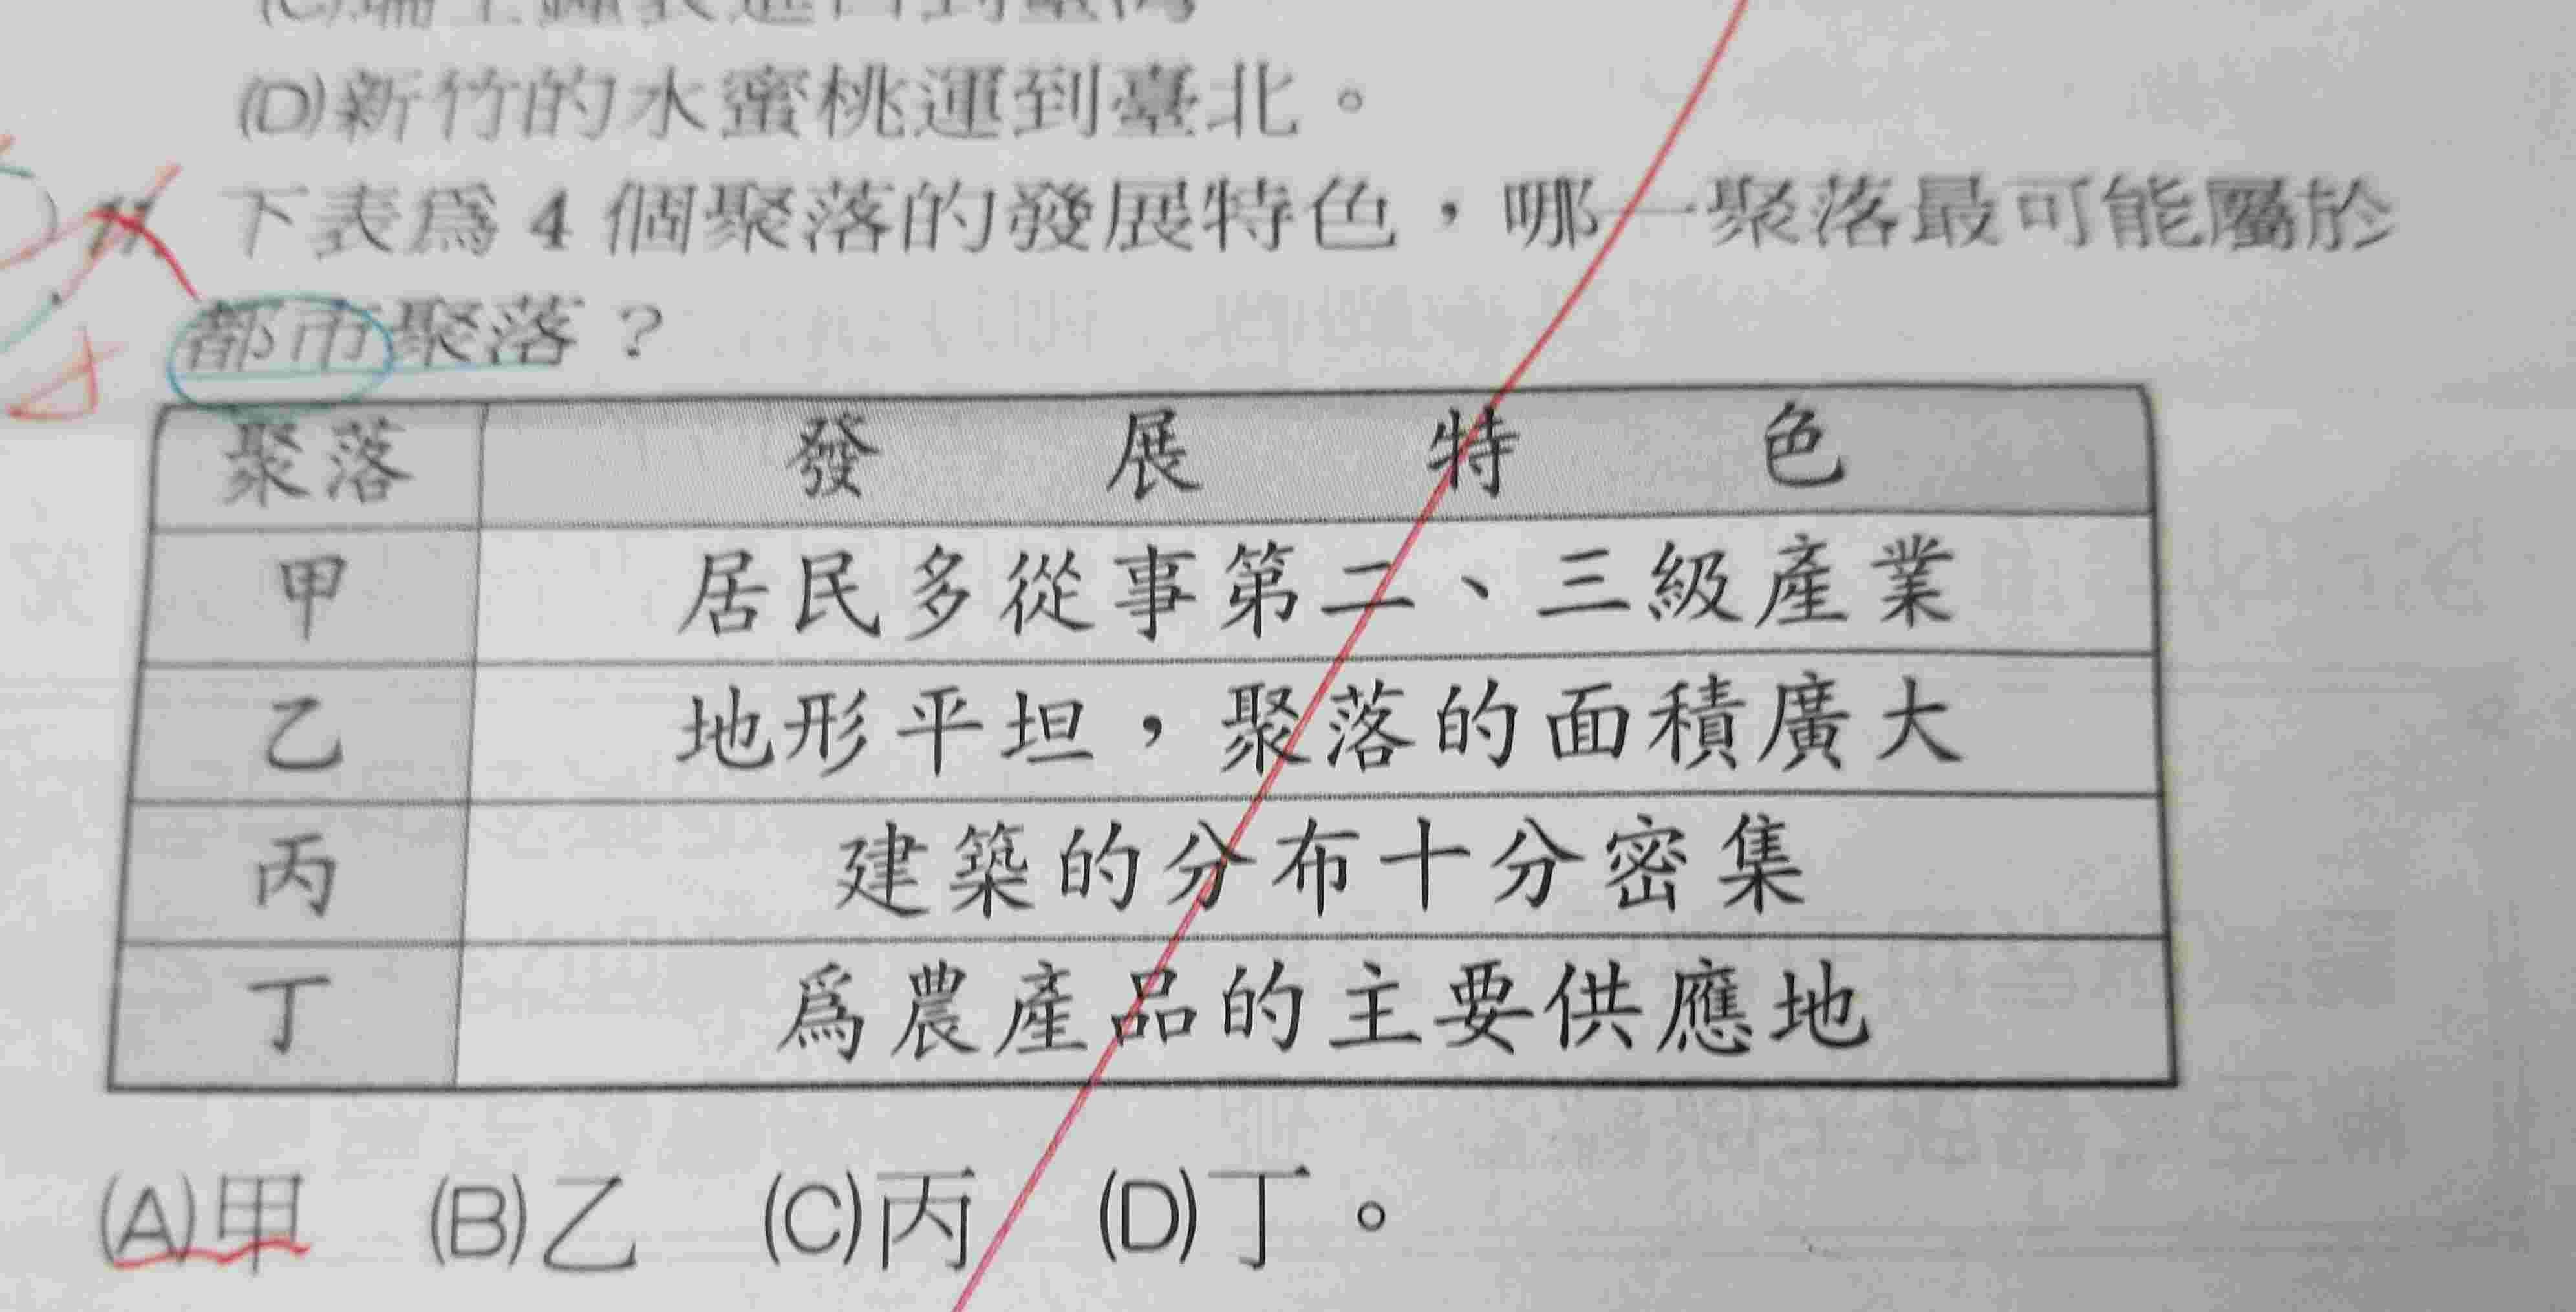 (D)新竹的水蜜桃運到臺北。
11. 下表爲 4 個聚落的發展特色，哪一聚落最可能屬於
都市聚落？
聚落 發展特色
甲 居民多從事第二、三級產業
乙 地形平坦，聚落的面積廣大
丙 建築的分布十分密集
丁 爲農產品的主要供應地
(A)甲 (B)乙 (C)丙 (D)丁。